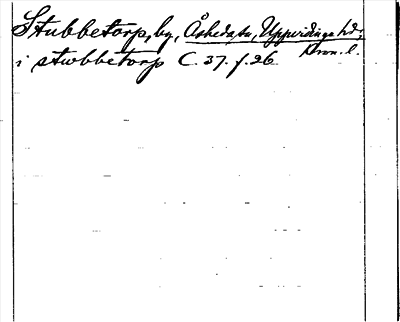 Stubbetorp, by, Åsheda sn, Uppvidinge hd,
Kron. l.
i stwbbetorp C. 37. f. 26